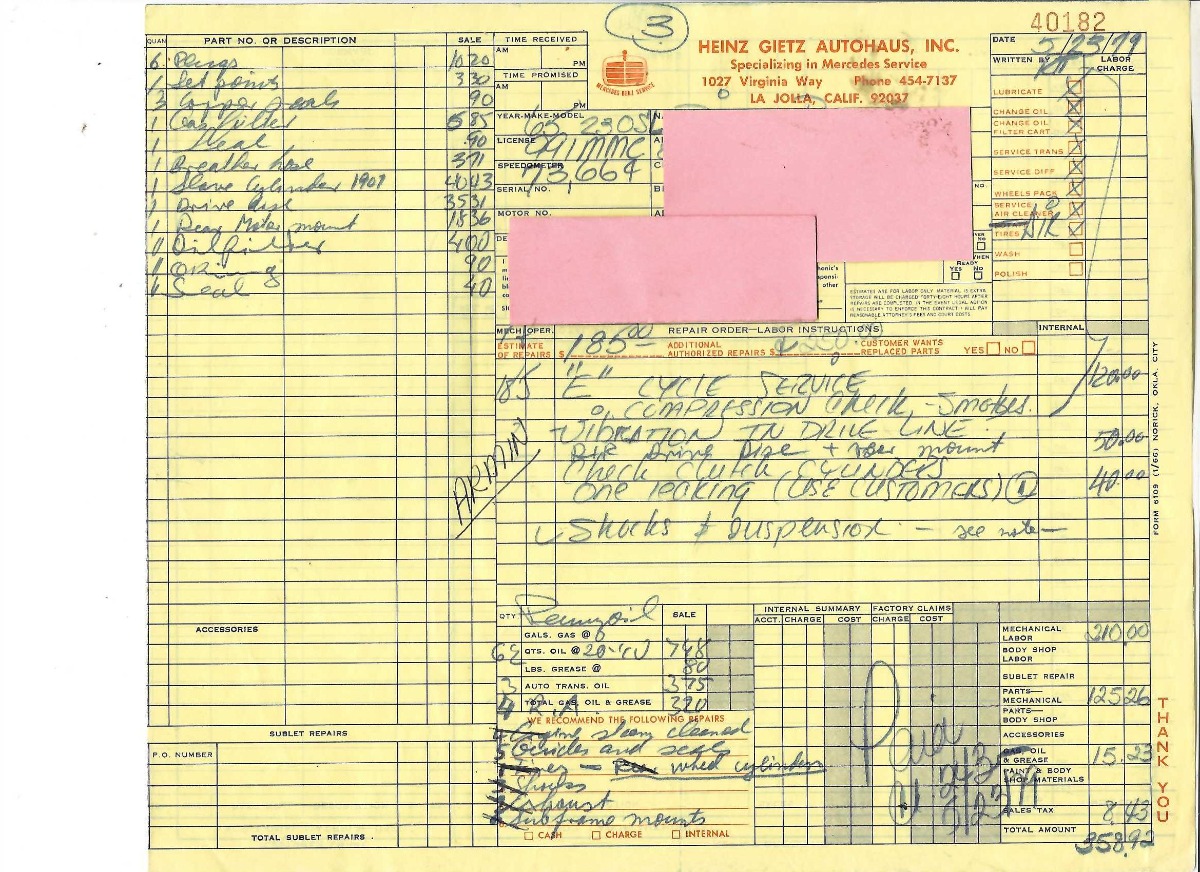 3
40182
HEINZ GIETZ AUTOHAUS, INC.
Specializing in Mercedes Service
1027 Virginia Way Phone 454-7137
LA JOLLA, CALIF. 92037
MERCEDES BENZ SERVICE
DATE 5/23/79
WRITTEN BY
LABOR CHARGE
QUAN. PART NO. OR DESCRIPTION SALE
6 Plugs 10 20
1 Set points 3 30
3 Copper seals 90
1 Gas filter 5 85
1 Seal .90
1 Breather hose 3 71
1 Slave Cylinder 1901 40 43
1 Drive disc 35 31
1 Rear Motor mount 18 36
" Oil filter 4 00
" O Ring 90
" Seal 40
TIME RECEIVED
AM
PM
TIME PROMISED
AM
PM
YEAR-MAKE-MODEL 65 230SL
LICENSE 991MMC
SPEEDOMETER 73,664
SERIAL NO.
MOTOR NO.
LUBRICATE
CHANGE OIL
CHANGE OIL FILTER CART.
SERVICE TRANS
SERVICE DIFF
WHEELS PACK
SERVICE AIR CLEANER
TIRES AIR
WASH
POLISH
READY
YES NO
ESTIMATES ARE FOR LABOR ONLY, MATERIAL IS EXTRA. STORAGE WILL BE CHARGED FORTY-EIGHT HOURS AFTER REPAIRS ARE COMPLETED. IN THE EVENT LEGAL ACTION IS NECESSARY TO ENFORCE THIS CONTRACT I WILL PAY REASONABLE ATTORNEY'S FEES AND COURT COSTS.
MECH. OPER. REPAIR ORDER—LABOR INSTRUCTIONS INTERNAL
ESTIMATE OF REPAIRS $ 185.00 ADDITIONAL AUTHORIZED REPAIRS $ 250.00 CUSTOMER WANTS REPLACED PARTS YES NO
185 "E" CYCLE SERVICE 120.00
COMPRESSION CHECK, - SMOKES.
VIBRATION IN DRIVE LINE. 50.00
R&R Drive Disc + rear mount
Check CLUTCH CYLINDERS 40.00
One leaking (USE CUSTOMERS) 1
ARMIN
Shocks & suspension - see note -
FORM 6109 (1/66) NORICK, OKLA. CITY
QTY Pennzoil SALE
GALS. GAS @
6½ QTS. OIL @ 20-40 7 48
LBS. GREASE @ 80
3 AUTO TRANS. OIL 3 75
4 R.A. 3 20
TOTAL GAS, OIL & GREASE
WE RECOMMEND THE FOLLOWING REPAIRS
Engine steam cleaned
and seals
Tires - Rear wheel cylinders
Shocks
Exhaust
Subframe mounts
CASH CHARGE INTERNAL
ACCESSORIES
SUBLET REPAIRS
P.O. NUMBER
TOTAL SUBLET REPAIRS
INTERNAL SUMMARY FACTORY CLAIMS
ACCT. CHARGE COST CHARGE COST
Paid
MECHANICAL LABOR 210.00
BODY SHOP LABOR
SUBLET REPAIR
PARTS—MECHANICAL 125.26
PARTS—BODY SHOP
ACCESSORIES
GAS, OIL & GREASE 15.23
PAINT & BODY SHOP MATERIALS
SALES TAX 8.43
TOTAL AMOUNT 358.92
THANK YOU